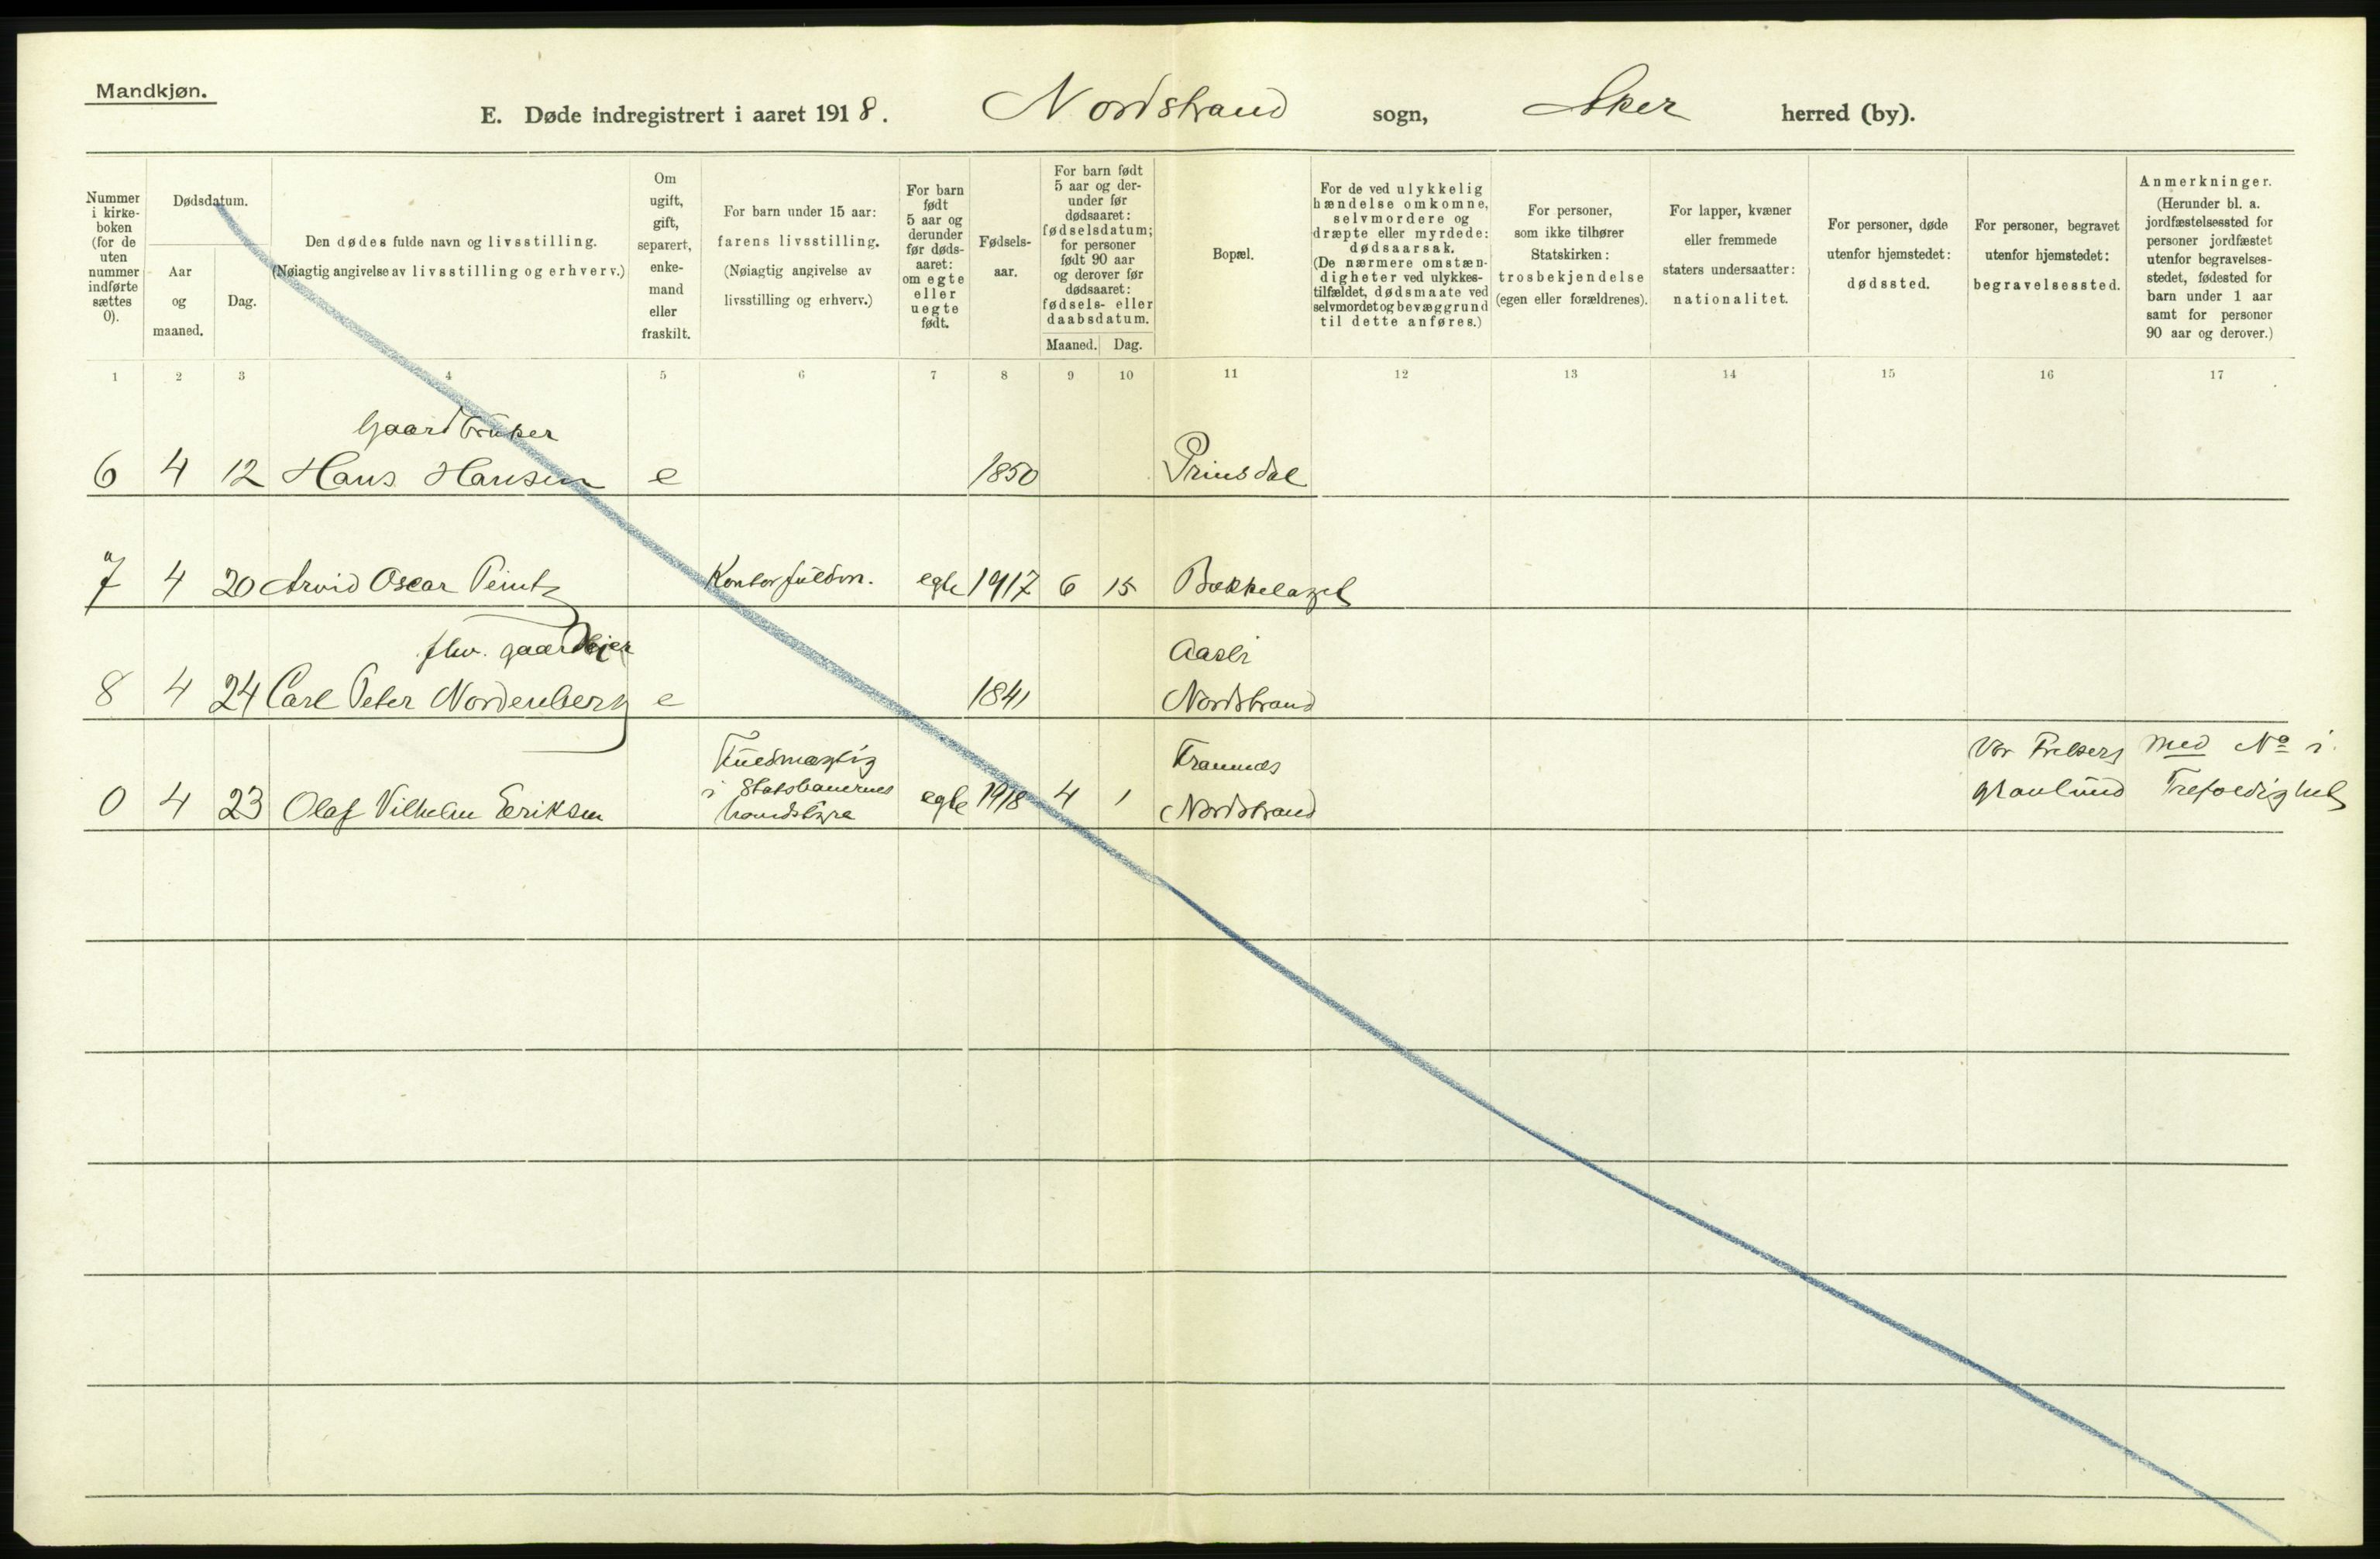 Mandkjøn.
E. Døde indregistrert i aaret 1918. Nordstrand sogn, Aker herred (by).
Nummer i kirke-boken (for de uten nummer indførte sættes 0).
Dødsdatum.
Aar og maaned.
Dag.
Den dødes fulde navn og livsstilling.
(Nøiagtig angivelse av livsstilling og erhverv.)
Om ugift, gift, separert, enke-mand eller fraskilt.
For barn under 15 aar: farens livsstilling. (Nøiagtig angivelse av livsstilling og erhverv.)
For barn født 5 aar og derunder før døds-aaret: om egte eller uegte født.
Fødsels-aar.
For barn født 5 aar og der-under før dødsaaret: fødselsdatum; for personer født 90 aar og derover før dødsaaret: fødsels- eller daabsdatum.
Maaned. Dag.
Bopæl.
For de ved ulykkelig hændelse omkomne, selvmordere og dræpte eller myrdede: dødsaarsak. (De nærmere omstæn-digheter ved ulykkes-tilfældet, dødsmaate ved selvmordet og bevæggrund til dette anføres.)
For personer, som ikke tilhører Statskirken: trosbekjendelse (egen eller forældrenes).
For lapper, kvæner eller fremmede staters undersaatter: nationalitet.
For personer, døde utenfor hjemstedet: dødssted.
For personer, begravet utenfor hjemstedet: begravelsessted.
Anmerkninger. (Herunder bl. a. jordfæstelsessted for personer jordfæstet utenfor begravelses-stedet, fødested for barn under 1 aar samt for personer 90 aar og derover.)
1 2 3 4 5 6 7 8 9 10 11 12 13 14 15 16 17
Gaardbruker
6 4 12 Hans Hansen e 1850 Prinsdal
7 4 20 Arvid Oscar Kontorfuldm. egte 1917 6 15 Bækkelaget
fhv. gaardeier Aasli
8 4 24 Carl Peter Nordenberg e 1841 Nordstrand
Fuldmægtig Framnæs Vor Frelsers med No i
0 4 23 Olaf Vilhelm Eriksen i Statsbanernes egte 1918 4 1 Nordstrand gravlund Trefoldighet